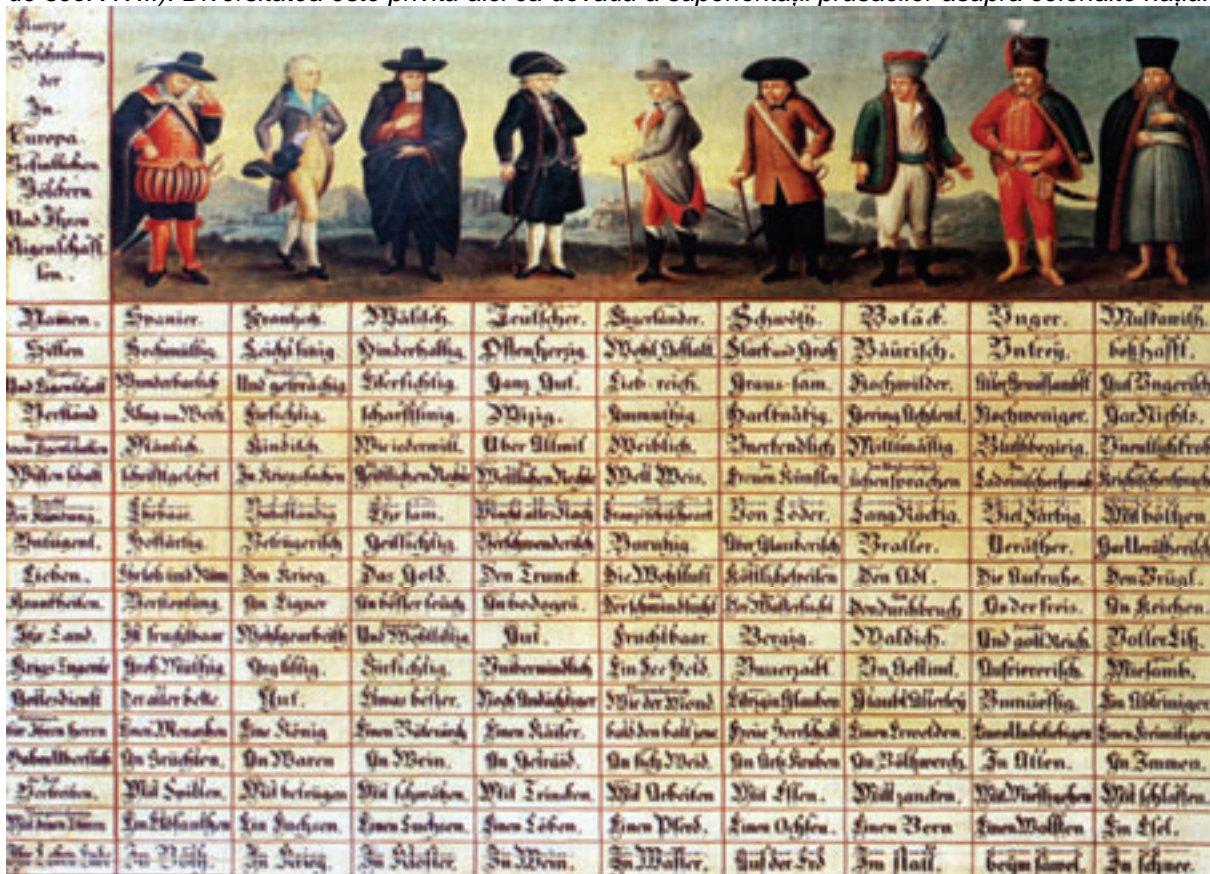 de sec. XVIII). Diversitatea este privită aici ca dovadă a superiorității prusacilor asupra celorlalte
Kurze
Beschreibung
der
In
Europa
Befintlichen
Völckern
Und Ihren
Aigenschafften.
Namen. Spanier. Frantzoß. Wälisch. Teutscher. Engerländer. Schwöth. Boläck. Unger. Muskawith.
Sitten Hochmüttig. Leichtsinig. Hinderhaltig. Offenherzig. Wohl Gestalt. Starck und Groß Bäurisch. Untrey. boßhafft.
Und Eigenschaft Wunderbarlich Und gesprächig Eifersichtig. Ganz Gut. Lieb-reich. Graus-sam. Nochwilder. Aller Grausambst Gut Ungerisch
Verstand Klug und Weiß Firsichtig. Scharffsinig. Wizig. Anmuthig. Hartknäkig. Gering Achtent. Nochweniger. Gar Nichts.
Mänlich. Kindisch. Wie iederwill. Uber Allmit Weiblich. Unerkendlich Mittlmässig. Bluthbegirig. Unentlichkrob
Wissenschaft Schrifftgelehrt In Kriegssachen Geistlichen Rechte Weltlichen Rechte Welt Weis. Freuen Künsten Ladeinischersprach Krichischersprache
Ehrbaar. Unbeständig Ehrsam. Macht alles Nach Französischeart Von Löder. Lang Röckig. Viel Färbig. Mit böltzen
Untugent. Hoffärtig. Betrügerisch Geillsichtig. Verschwenderisch Unruhig. Über Glauberisch Braller. Veräther. Gar Verätherisch
Lieben. Ehrlob und Rum Den Krieg. Das Gold. Den Trunck. Die Wohllust Köstlichespeisen Den Adl. Die Aufruhr. Den Brügl.
Kranckheiten. Verstopfung. An Eigner An böser seüch. An bodogrä. Der schwindsucht Der Wassersucht Den durchbruch An der freis. An Keichen.
Ihr Land. Ist fruchtbaar Wohlgearbeith Und Wollüstig Gut. Fruchtbaar. Bergig. Waldich. Und goltReich. Voller Eiß.
Krigs Tugente Groß Müthig Arg listig. Firsichtig. Uniberwindlich Ein See Held. Unverzakt Un Gestimt. Aufriererisch. Miesamb.
Gottesdienst Der aller beste Gut. Etwas besser. Noch Andächtiger Wie der Mond. Eifrig in Glauben Glaubt Allerley Unmüessig. Ein Abtriniger
Einen Monarhen Eine König Einen Käiser. bald den bald jene Freie Herrschaft Einen Erwelden. Einen Unbeliebigen Einen Freimiligen
An Früchten. An Waren An Wein. An Getraid. An fich Weid. An Ärtz Kruben An Böltzwerch. In Allen. An Immen.
Verzeiten. Mit Spillen. Mit betrügen Mit schwätzen. Mit Trincken. Mit Arbeiten Mit Essen. Mit zancken. Mit Müessigehen Mit schlaffen.
Ein Elöfanthen Ein Fuchsen. Einen Luchsen. Einen Löben. Einen Pferd. Einen Ochsen. Einen Bern Einen Wolffen Ein Esel.
In Böth. In Krieg. In Kloster. In Wein. In Wasser. Auf der Erd Im stall. beym säwel. In schnee.